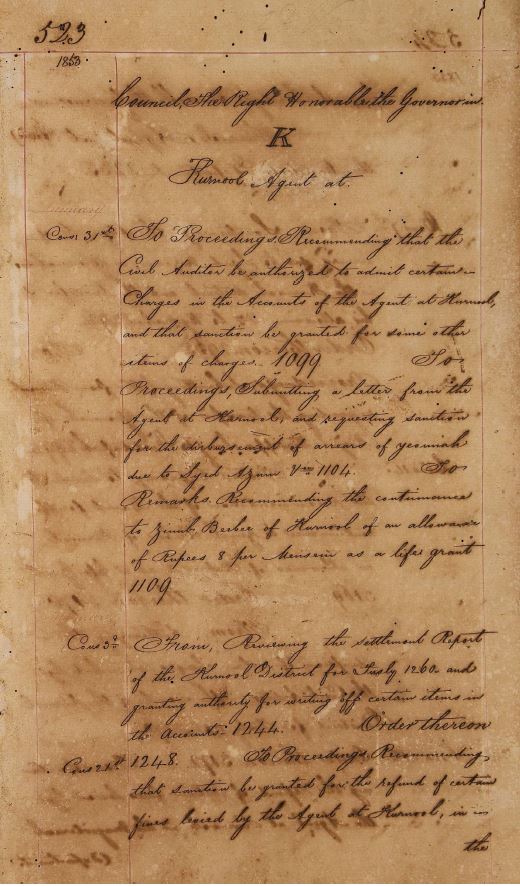 523
1853
Council, The Right Honorable the Governor in
K
Kurnool Agent at.
Cons: 31st To Proceedings, Recommending that the
Civil Auditor be authorized to admit certain
Charges in the Accounts of the Agent at Kurnool,
and that sanction be granted for some other
items of charges. 1099 To
Proceedings, Submitting a letter from the
Agent at Kurnool, and requesting sanction
for the disbursement of arrears of yeomiah
due to Syed Azum 1104. To
Remarks. Recommending the continuance
to Beebee of Kurnool of an allowance
of Rupees 8 per Mensem as a life grant
1109
Cons 3d From, Reviewing the settlement Report
of the Kurnool District for Fusly 1260 and
granting authority for writing off certain items in
the Accounts. 1244. Order thereon
Cons 21st 1248. To Proceedings. Recommending,
that sanction be granted for the refund of certain
fines levied by the Agent at Kurnool, in
the